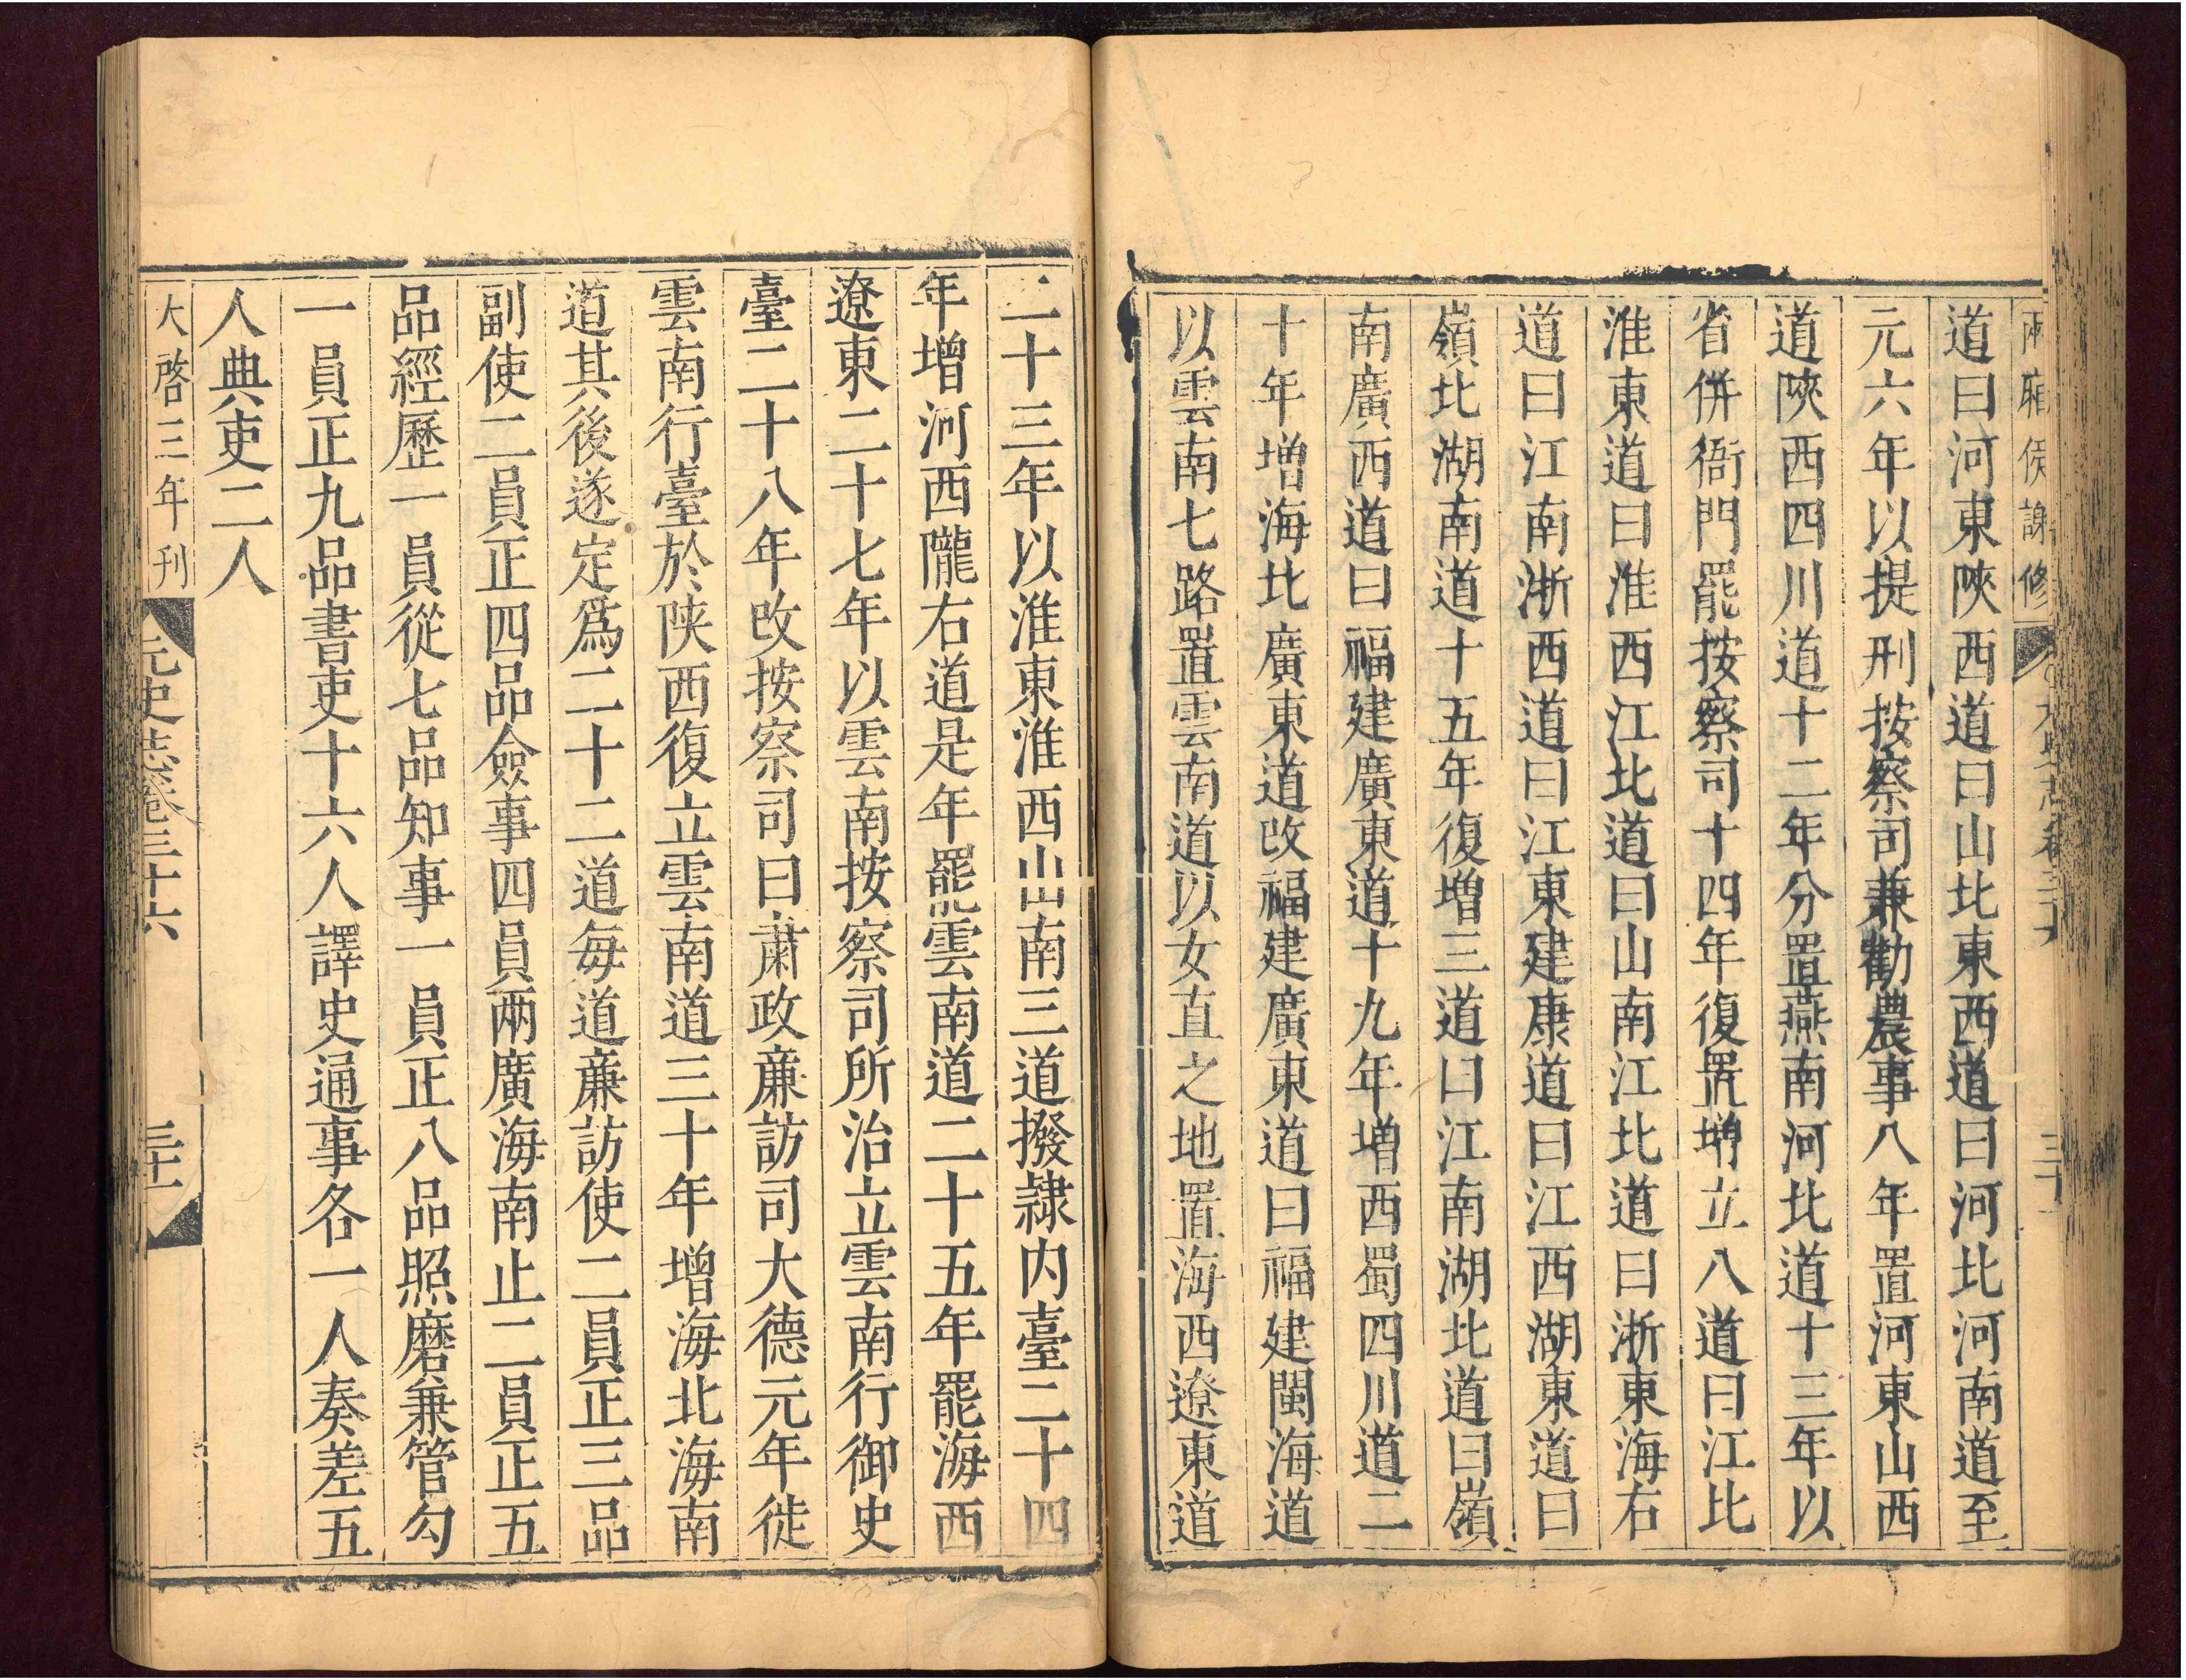 兩廂侯謝修
道曰河東陝西道曰山北東西道曰河北河南道至
元六年以提刑按察司兼勸農事八年置河東山西
道陝西四川道十二年分置燕南河北道十三年以
省併衙門罷按察司十四年復置增立八道曰江北
淮東道曰淮西江北道曰山南江北道曰浙東海右
道曰江南浙西道曰江東建康道曰江西湖東道曰
嶺北湖南道十五年復增三道曰江南湖北道曰嶺
南廣西道曰福建廣東道十九年增西蜀四川道二
十年增海北廣東道改福建廣東道曰福建閩海道
以雲南七路置雲南道以女直之地置海西遼東道
二十三年以淮東淮西山南三道撥隸内臺二十四
年增河西隴右道是年罷雲南道二十五年罷海西
遼東二十七年以雲南按察司所治立雲南行御史
臺二十八年改按察司曰肅政廉訪司大德元年徙
雲南行臺於陝西復立雲南道三十年增海北海南
道其後遂定爲二十二道每道廉訪使二員正三品
副使二員正四品僉事四員兩廣海南止二員正五
品經歷一員從七品知事一員正八品照磨兼管勾
一員正九品書吏十六人譯史通事各一人奏差五
人典吏二人
大啓三年刊 元史志卷三十六 三十一